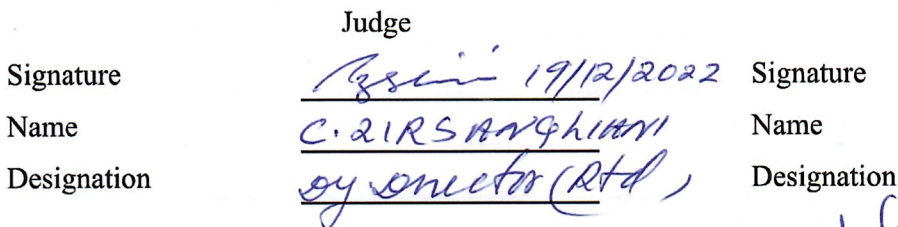 Judge
Signature 19/12/2022 Signature
Name C. ZIRSANGLIANI Name
Designation Dy Director (Rtd) Designation